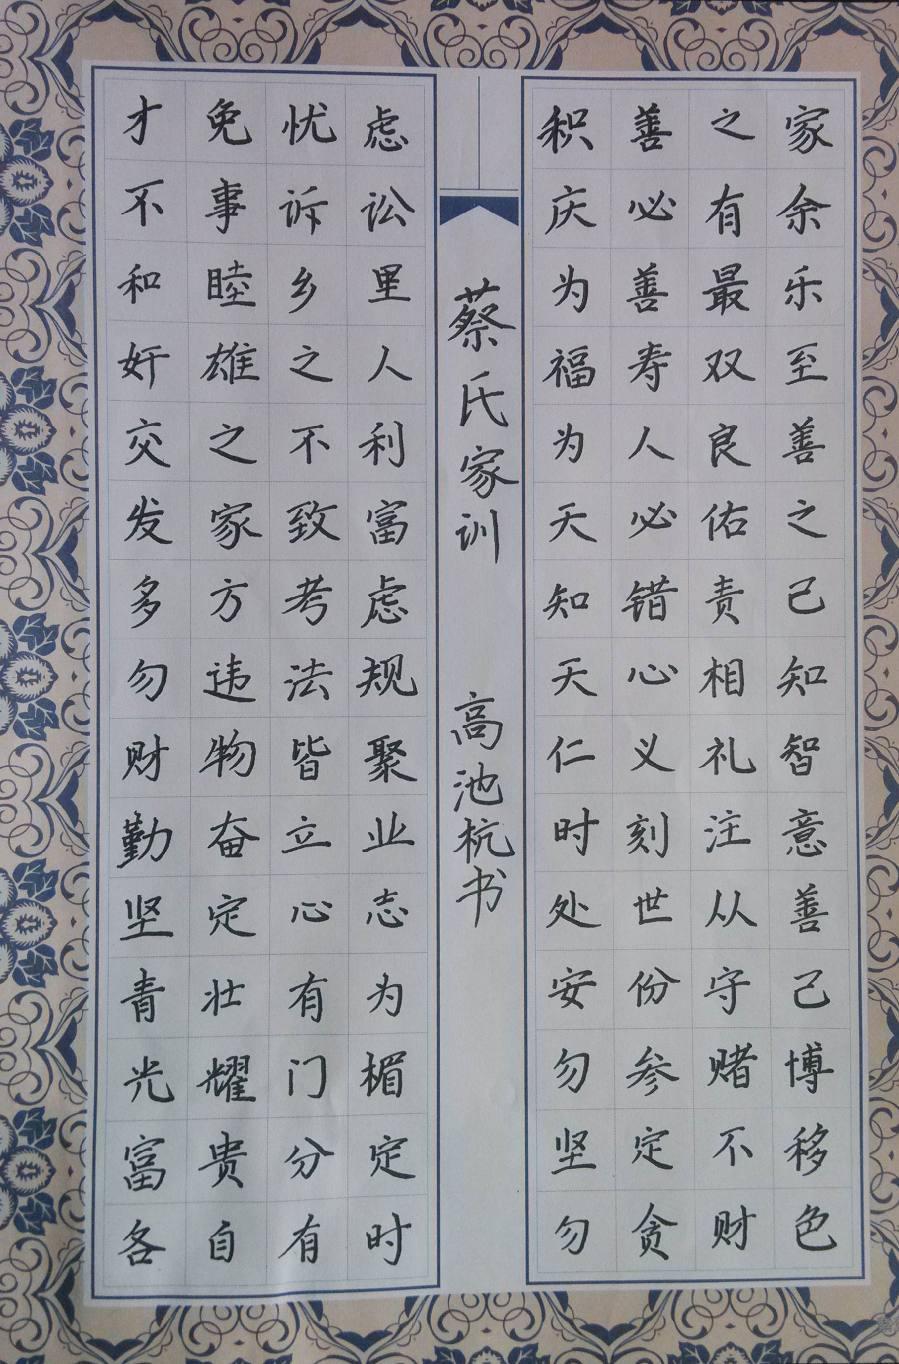 积善之家
庆必有余
为善最乐
福寿双至
为人良善
天必佑之
知错责己
天心相知
仁义礼智
时刻注意
处世从善
安份守己
勿参赌博
坚定不移
勿贪财色
蔡氏家训 高池杭书
才免忧虑
不事诉讼
和睦乡里
奸雄之人
交之不利
发家致富
多方考虑
勿违法规
财物皆聚
勤奋立业
坚定心志
青壮有为
光耀门楣
富贵分定
各自有时